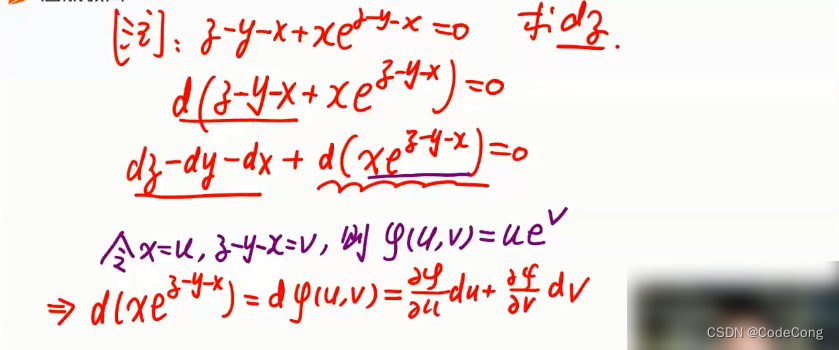 [注]: z-y-x+xe^{z-y-x}=0 求dz.
d(z-y-x+xe^{z-y-x})=0
dz-dy-dx+d(xe^{z-y-x})=0
令x=u, z-y-x=v, 则φ(u,v)=ue^v
⇒ d(xe^{z-y-x})=dφ(u,v)=∂φ/∂u du+∂φ/∂v dv
CSDN @CodeCong